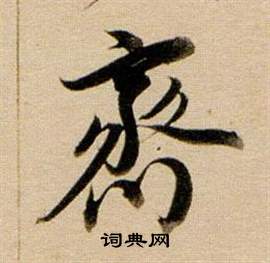 齋
词典网